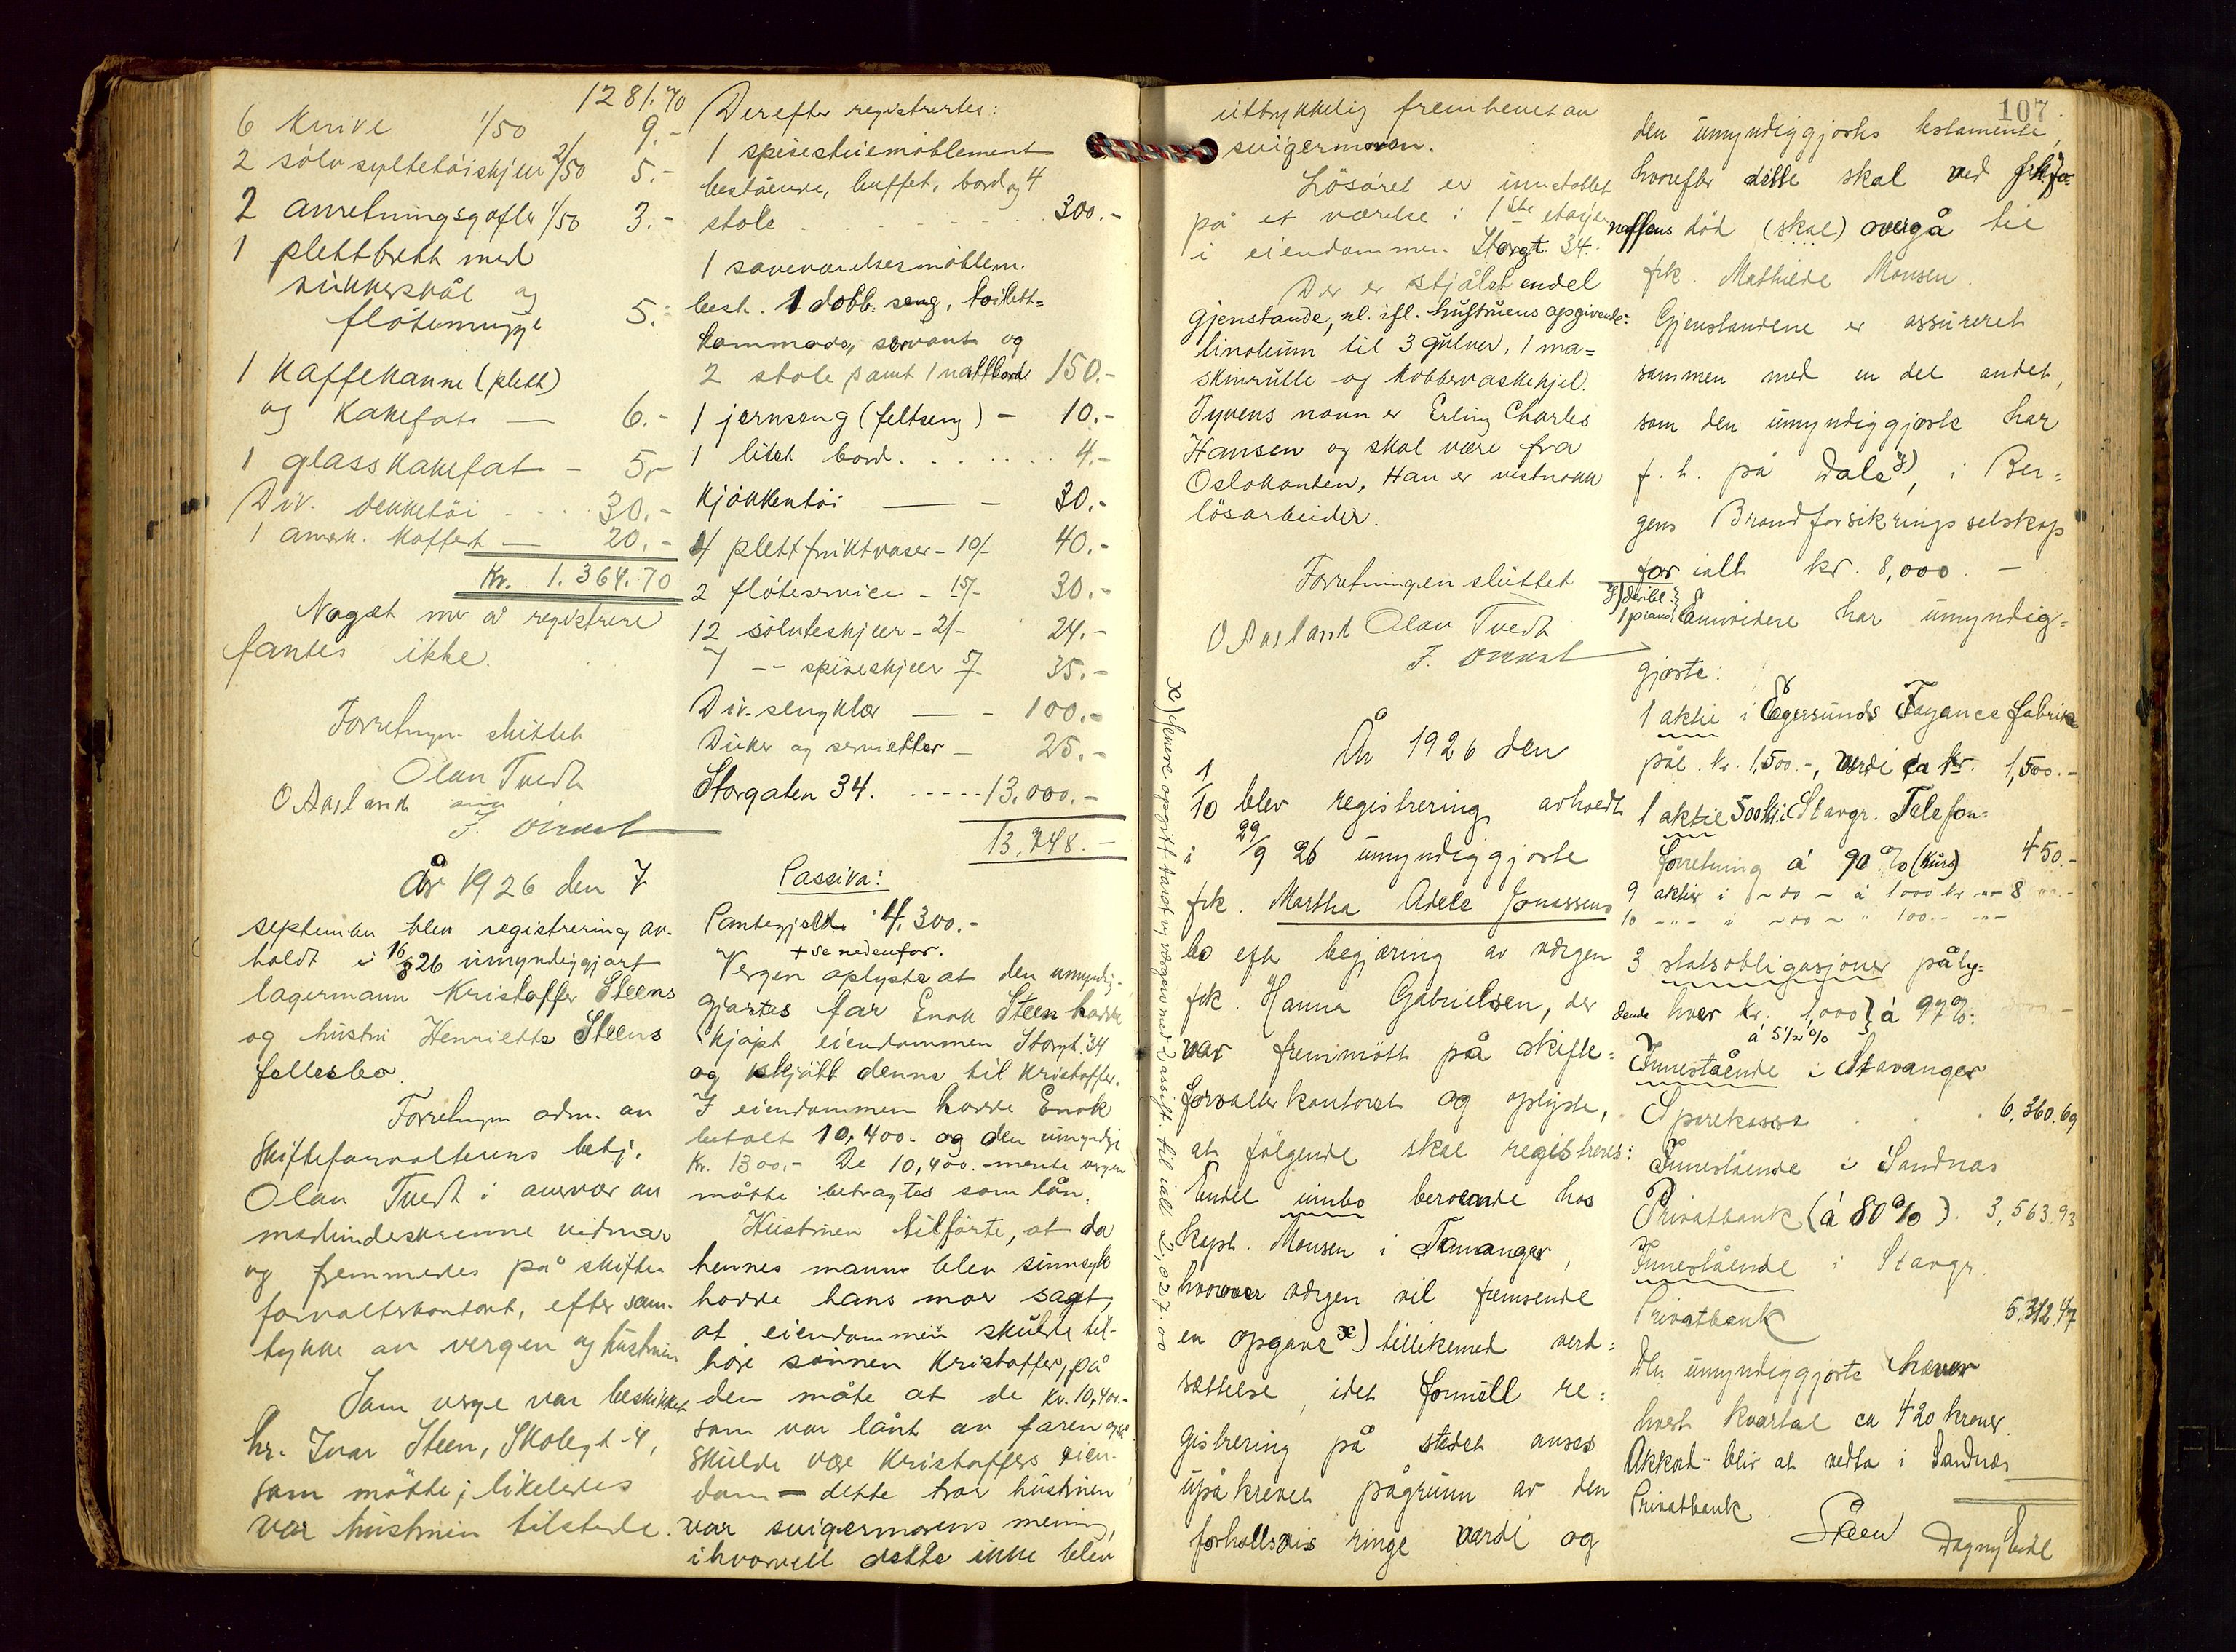 1281.70
6 knive 1/50 9.-
2 sølvsyltetøiskjeer 2/50 5.-
2 anretningsgafler 1/50 3.-
1 plettbrett med
sukkerskål og
fløtemugge 5.-
1 Kaffekanne (plett)
og kakefat — 6.-
1 glasskakefat - 5.-
Div. dekketøi - - - 30.-
1 amerk. Koffert — 20.-
Kr. 1.364.70
Noget mer å registrere
fantes ikke.
Forretningen sluttet
Olav Tvedt
O Aasland
År 1926 den 7
september blev registrering av-
holdt i 16/8 26 umyndiggjort
lagermann Kristoffer Steens
og hustru Henriette Steens
fellesbo.
Forretningen adm. av
skifteforvalterens betj.
Olav Tvedt i anvær av
medundeskrevne vidner
og fremmedes på skifte-
forvalterkontoret, efter sam-
tykke av vergen og hustruen
Som verge var beskikket
hr. Ivar Steen, Skolegt. 4,
som møtte; likeledes
var hustruen tilstede.
Derefter registrertes:
1 spisestuemøblement
bestående, buffet, bord og 4
stole . . . . . 300.-
1 soveværelsesmøblem.
best. 1 dobb. seng, toilett-
kommode, servant og
2 stole samt 1 nattbord 150.-
1 jernseng (feltseng) - 10.-
1 litet bord . . . . . . 4.-
Kjøkkentøi — - 30.-
4 plett fruktvaser - 10/- 40.-
2 fløteservice - 15/- 30.-
12 sølvteskjeer - 2/- 24.-
7 -- spiseskjeer 5/- 35.-
Div. sengklær — - 100.-
Duker og servietter - 25.-
Storgaten 34. - - - - - 13.000.-
13.748.-
Passiva:
Pantegjeld 4.300.-
+ se nedenfor.
Vergen oplyste at den umyndig-
gjortes far Enok Steen hadde
kjøpt eiendommen Storgt. 34
og skjøtt denne til Kristoffer.
I eiendommen hadde Enok
betalt 10,400.- og den umyndige
Kr. 1300.- De 10,400.- mente vergen
måtte betragtes som lån.
Hustruen tilførte, at da
hennes mann blev sinnsyk
hadde hans mor sagt,
at eiendommen skulde til-
høre sønnen Kristoffer, på
den måte at de Kr. 10,400.-
som var lånt av faren også
skulde være Kristoffers eien-
dom — dette tror hustruen
var svigermorens mening,
ihvorvel dette ikke blev
107
uttrykkelig fremhevet av
svigermoren.
Løsøret er innstallet
på et værelse i 1ste etasje
i eiendommen Storgt. 34.
Der er stjålet endel
gjenstande, nl. ifl. hustruens opgivende:
linoleum til 3 gulver, 1 ma-
skinrulle og kobbervaskekjel.
Tyvens navn er Erling Charles
Hansen og skal være fra
Oslokanten. Han er vistnokk
løsarbeider.
Forretningen sluttet
O Aasland Olav Tvedt
År 1926 den
1/10 blev registrering avholdt
i 29/9 26 umyndiggjorte
frk. Martha Adele Jonassens
bo efter begjæring av værgen
frk. Hanna Gabrielsen, der
var fremmøtt på skifte-
forvalterkontoret og oplyste,
at følgende skal registreres:
Endel innbo beroende hos
kapt. Monsen i Tananger,
hvorover værgen vil fremsende
en opgave x) tillikemed verd-
sættelse, idet formell re-
gistrering på stedet anses
upåkrevet pågrunn av den
forholdsvis ringe værdi og
x) Senere opgift takst og værgen med 2 assist. til ialt 2,027.00
den umyndiggjorts testamente,
hvorefter dette skal ved frk. Jo-
nassens død (skal) overgå til
frk. Mathilde Monsen.
Gjenstandene er assureret
sammen med en del andet,
som den umyndiggjorte har
f. t. på Dale y), i Ber-
gens Brandforsikringsselskap
for ialt kr. 8,000. -
y) deribl. 1 piano
Ennvidere har umyndig-
gjorte:
1 aktie i Egersunds Fayancefabrik
pål. kr. 1,500.-, verdi ca kr. 1,500.-
1 aktie 500 kr. i Stavgr. Telefon-
forretning á 90% (kurs) 450.-
9 aktier i ~ do ~ á 1000 kr
10 -"- i ~ do ~ " 100.-
3 statsobligasjoner påly-
dende hver kr. 1,000 á 97%
á 5½%
Innestående i Stavanger
Sparekasse . . 6,360.69
Innestående i Sandnes
Privatbank (á 80%). 3,563.93
Innestående i Stavgr.
Privatbank 5,312.47
Den umyndiggjorte hæver
hvert kvartal ca 420 kroner.
Akkord blir at vedta i Sandnes
Privatbank.
Steen Dagny